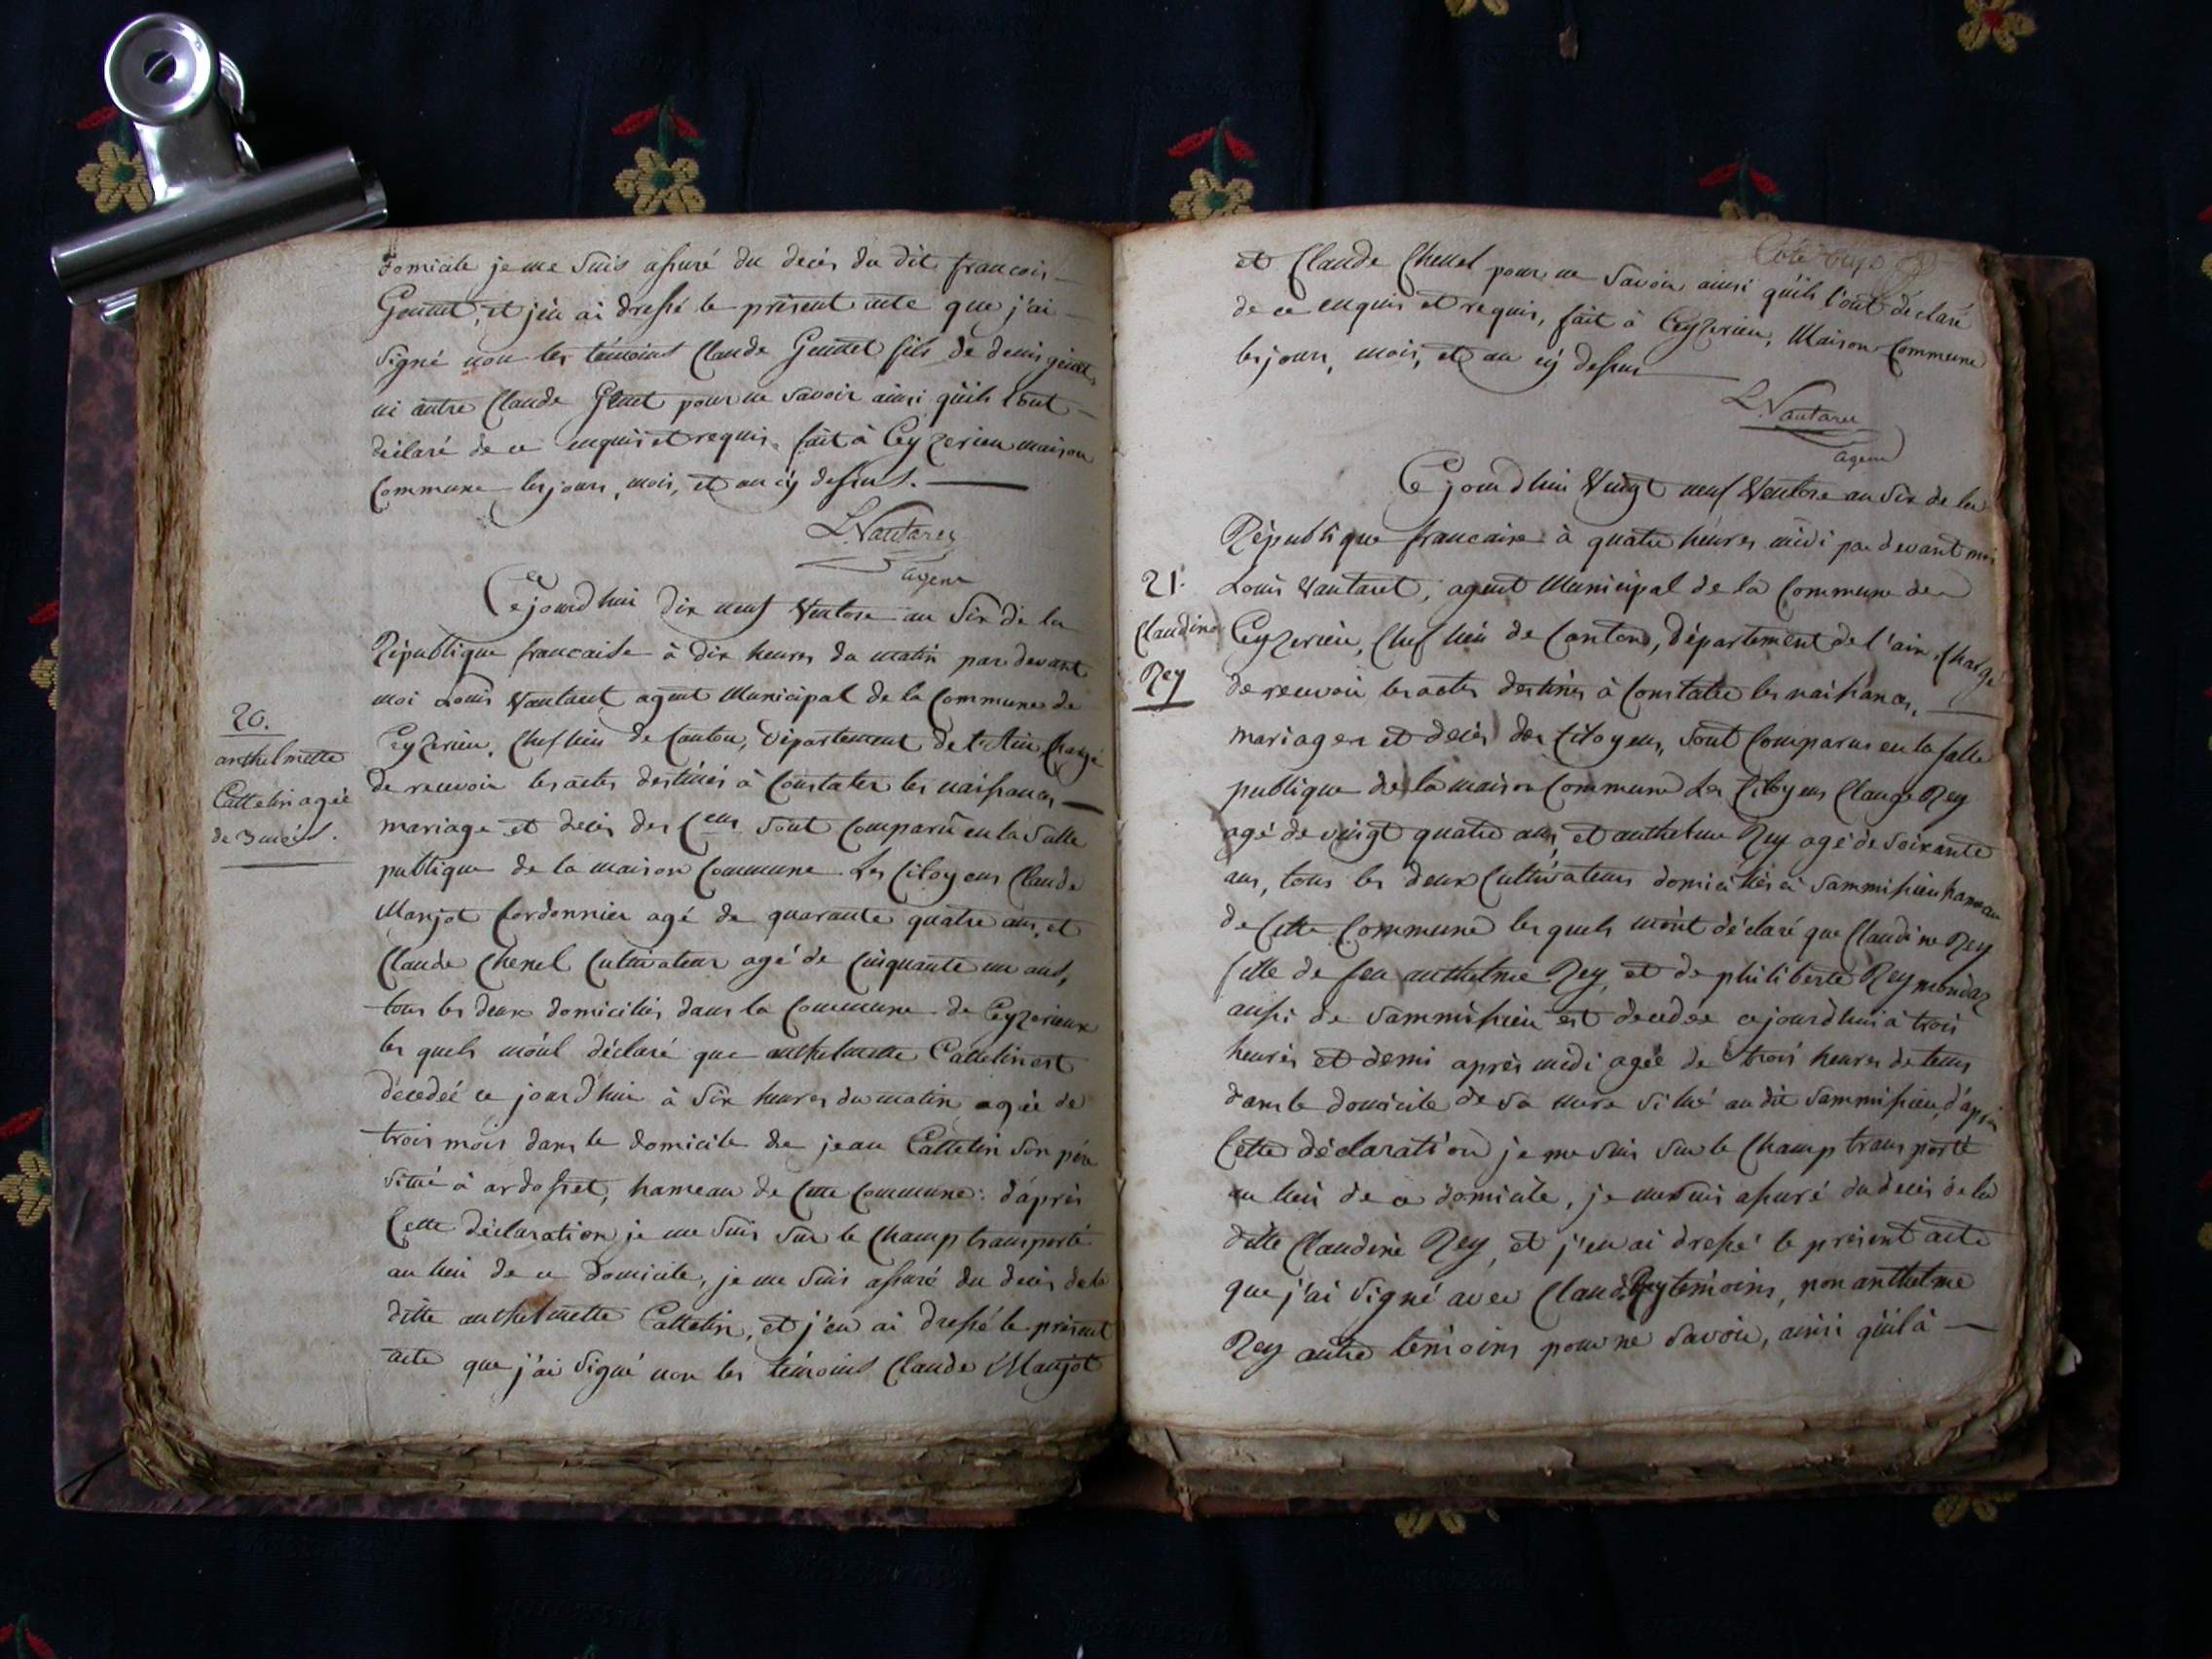 domicile je me suis assuré du décès du dit francois
Gonnet, et j'en ai dressé le présent acte que j'ai
signé non les témoins Claude Gennet fils de denis
ni autre Claude pour ne savoir ainsi qu'ils l'ont
déclaré de ce enquis et requis. fait à Ceyzerieu maison
Commune les jours, mois, et an cÿ dessus.
L. Vautaret
agent
Cejourd'hui dix neuf Ventose an Six de la
République francaise à dix heures du matin par devant
moi Louis Vautaret agent Municipal de la Commune de
Ceyzerieu, Chef lieu de Canton, Département de l'Ain Chargé
de recevoir les actes destinés à Constater les naissances
mariage et décès des Cens sont Comparu en la Salle
publique de la maison Commune Les Citoyens Claude
Marjot Cordonnier agé de quarante quatre ans, et
Claude Chenel Cultivateur agé de Cinquante un ans,
tous les deux domiciliés dans la Commune de Ceyzerieux
les quels m'ont déclaré que anthelmette Cattelin est
décedéé ce jourd'hui à Six heures du matin agée de
trois mois dans le domicile de jean Cattelin Son père
Situé à ardosset, hameau de Cette Commune: d'après
Cette déclaration je me suis Sur le Champ transporté
au lieu de ce Domicile, je me Suis assuré du décès de la
ditte anthelmette Cattelin, et j'en ai dressé le présent
acte que j'ai Signé non les témoins Claude Marjot
20.
anthelmette
Cattelin agée
de 3 mois.
et Claude Chenel pour ne Savoir ainsi qu'ils l'ont déclaré
de ce enquis et requis, fait à Ceyzerieu, Maison Commune
les jours, mois, et an cÿ dessus
L. Vautaret
agent
Cejourd'hui Vingt neuf Ventose an Six de la
République francaise à quatre heures midi par devant moi
Louis Vautaret, agent Municipal de la Commune de
Ceyzerieu, Chef lieu de Canton, Département de l'ain, Chargé
de recevoir les actes destinés à Constater les naissances,
mariages et décès des Citoyens, Sont Comparus en la Salle
publique de la maison Commune Les Citoyens Claude Rey
agé de vingt quatre ans, et anthelme Rey agé de Soixante
ans, tous les deux Cultivateurs domiciliés à Sammissieu hameau
de Cette Commune les quels m'ont déclaré que Claudine Rey
fille de feu anthelme Rey, et de philiberte Reymondaz
aussi de Sammissieu est decedée cejourdhui à trois
heures et demi après midi agée de trois heures de tems
dans le domicile de Sa mere Situé au dit Sammissieu, d'après
Cette déclaration je me suis Sur le Champ transporté
au lieu de ce domicile, je me suis assuré du decès de la
ditte Claudine Rey, et j'en ai dressé le present acte
que j'ai Signé avec Claude Rey temoins, non anthelme
Rey autre temoins pour ne Savoir, ainsi qu'il à
21.
Claudine
Rey